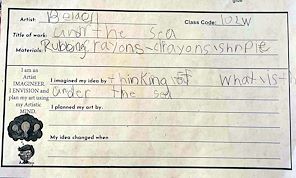 Artist:
Class Code: 102W
Title of work: under the sea
Materials: Rubbing crayons - crayons
I am an
Artist
IMAGINEER
I ENVISION and
plan my art using
my Artistic
MIND.
I imagined my idea by thinking of what is
under the sea
I planned my art by.
My idea changed when